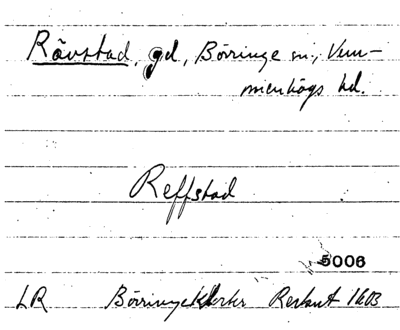 Rävstad, gd, Börringe sn, Vem-
menhögs hd.
Reffstad
5006
LR Börringekloster 1603